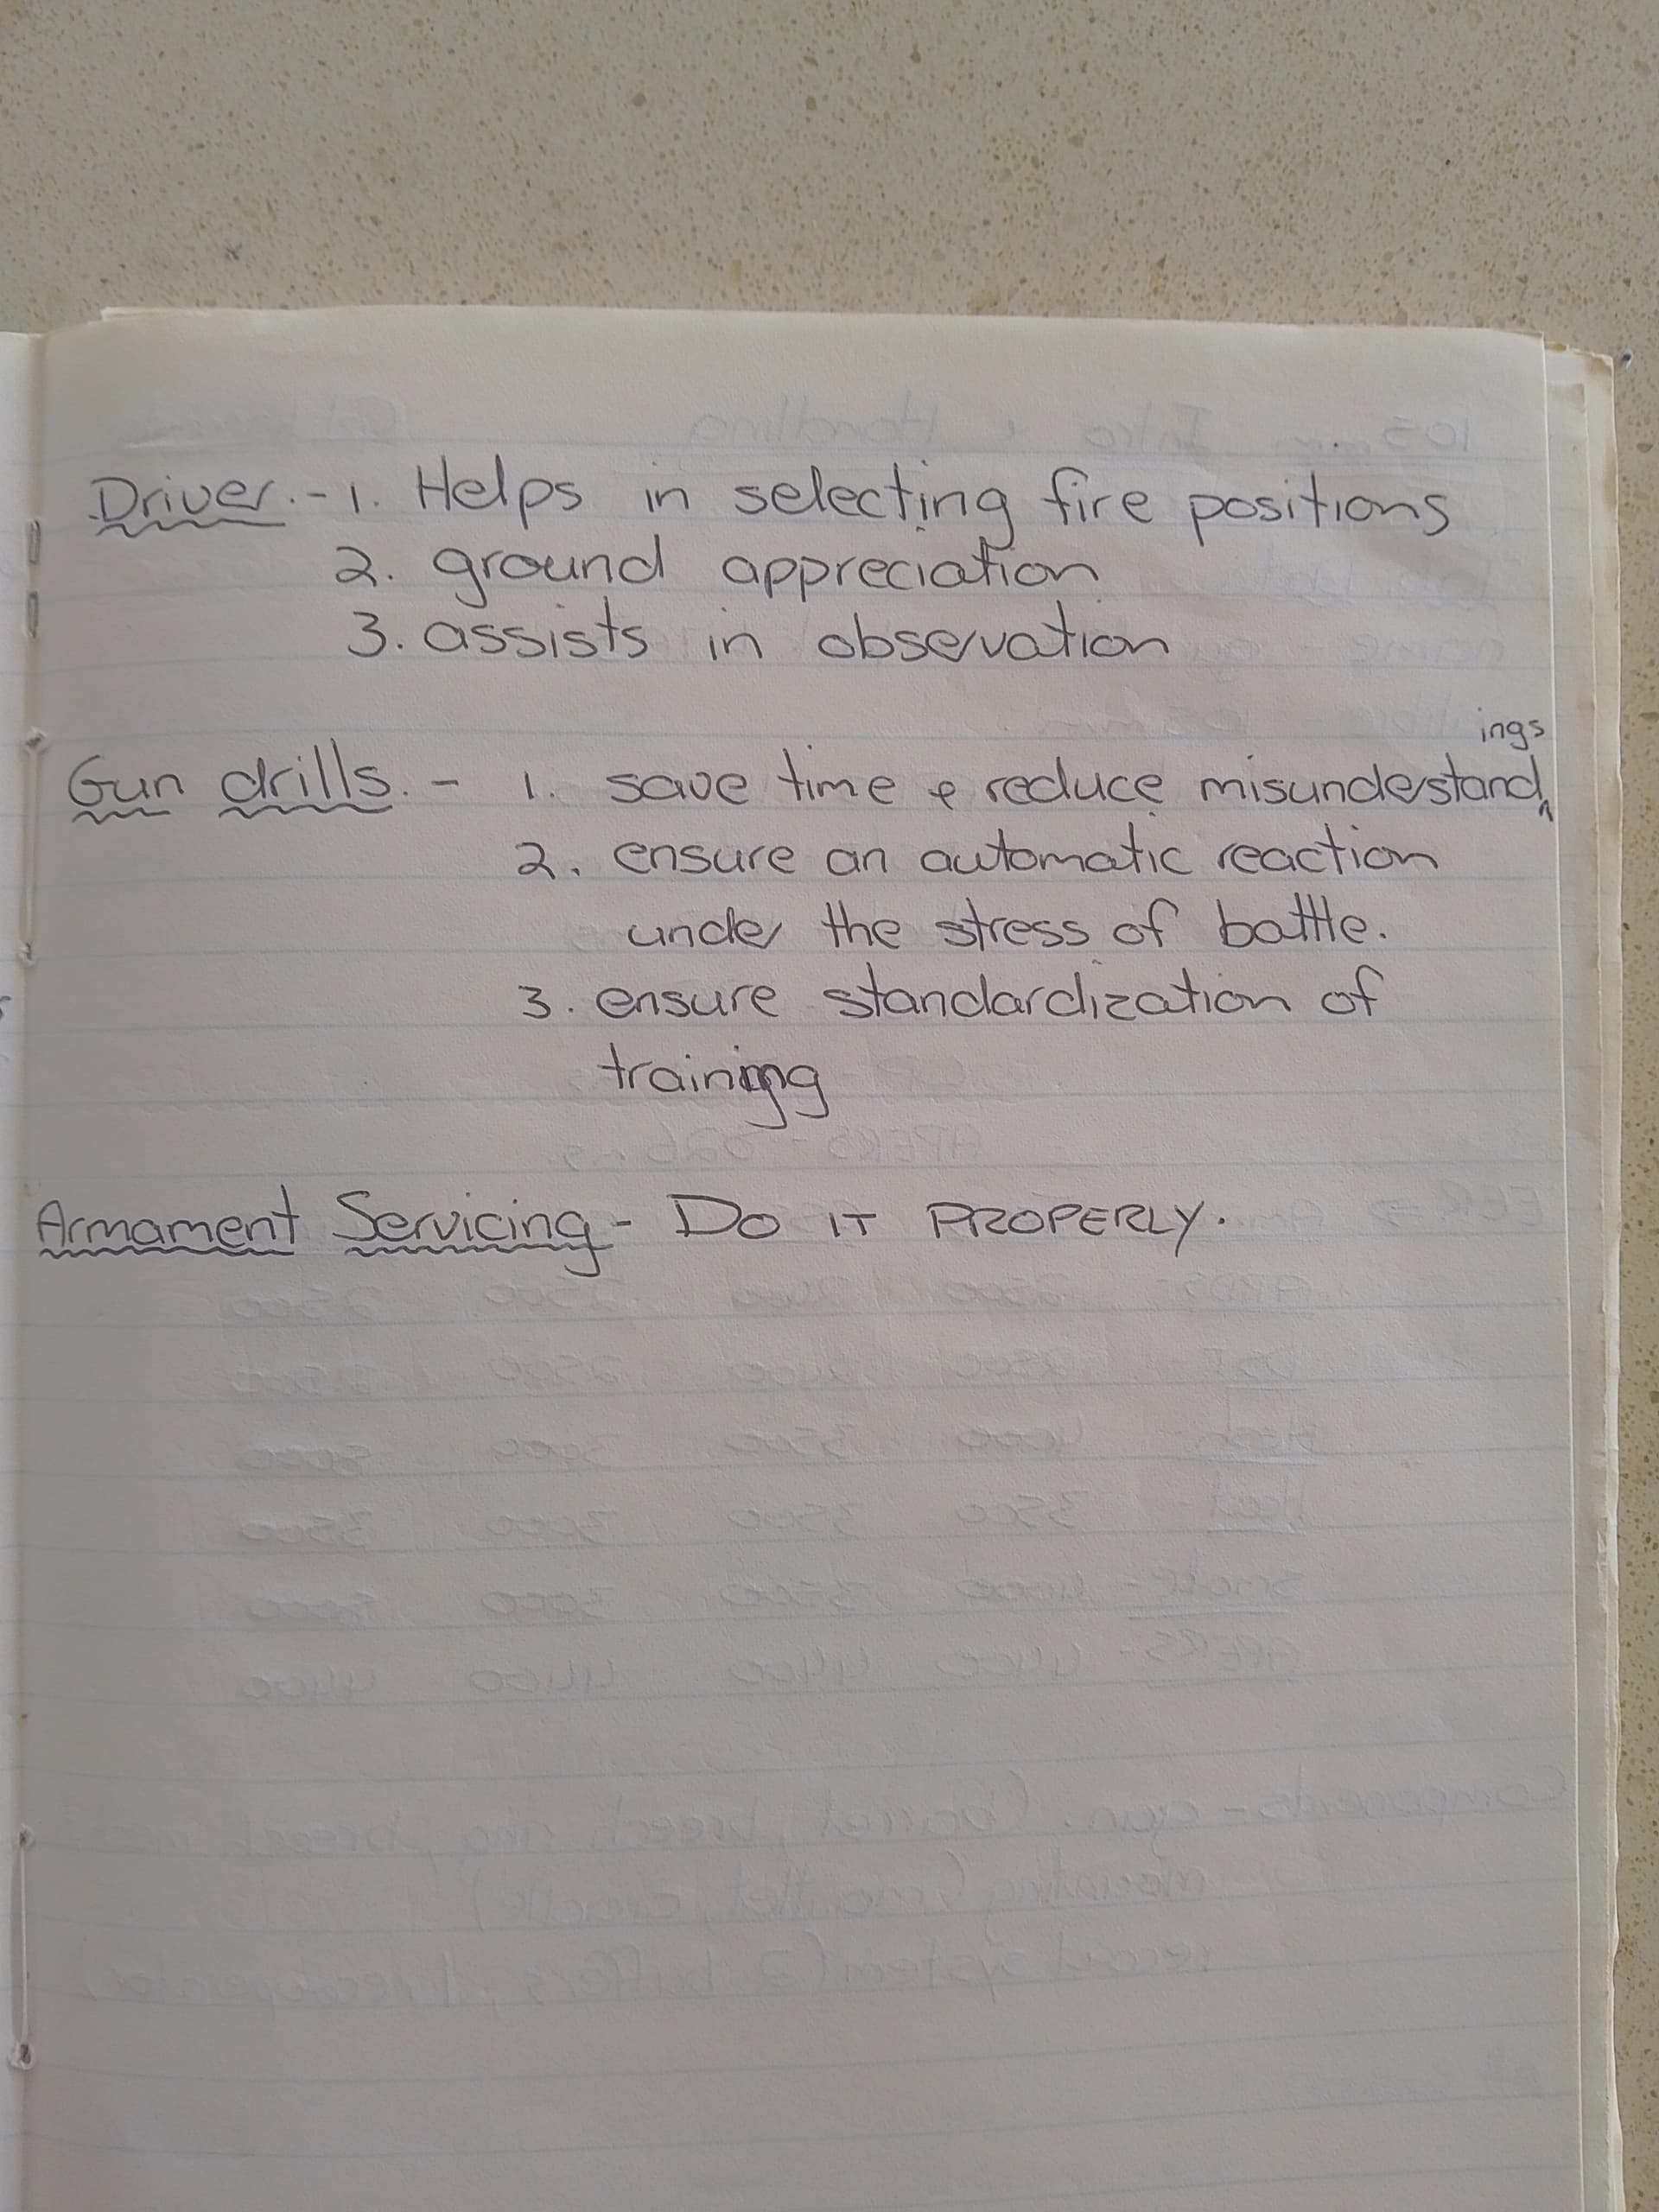 Driver. - 1. Helps in selecting fire positions
2. ground appreciation
3. assists in observation
Gun drills. - 1. save time & reduce misunderstandings
2. ensure an automatic reaction
under the stress of battle.
3. ensure standardization of
training
Armament Servicing - DO IT PROPERLY.